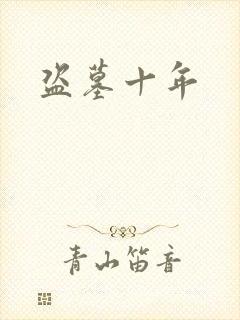 盗墓十年
青山笛音